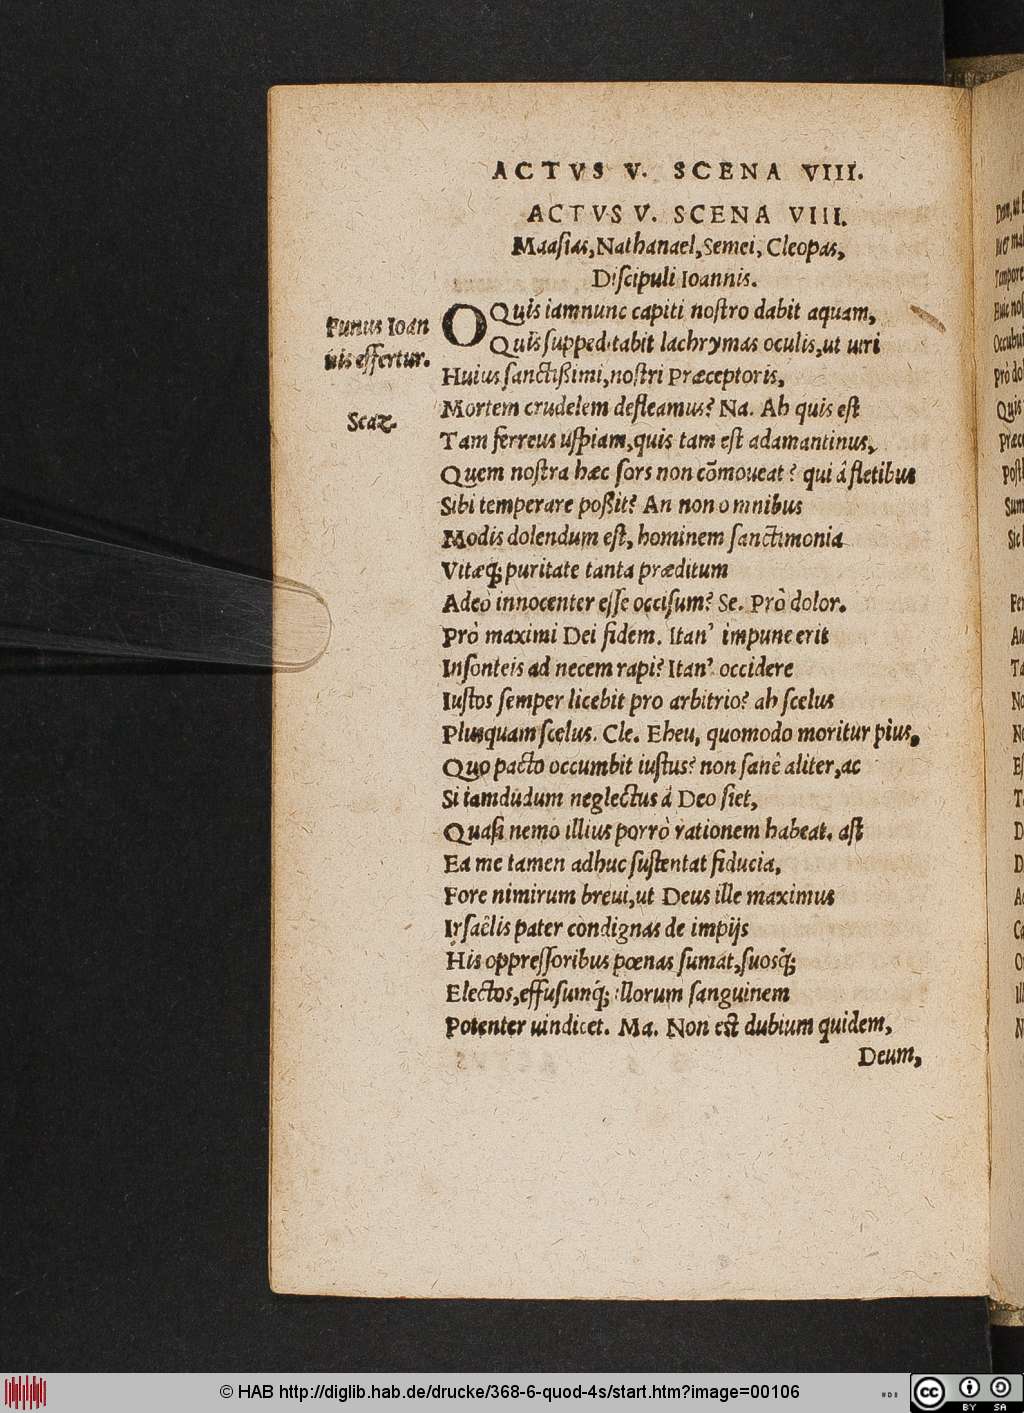 ACTVS V. SCENA VIII.
ACTVS V. SCENA VIII.
Maasias, Nathanael, Semei, Cleopas,
Discipuli Ioannis.
Funus Ioan
nis effertur.
Scaz.
O Quis iamnunc capiti nostro dabit aquam,
Quis suppeditabit lachrymas oculis, ut uiri
Huius sanctißimi, nostri Præceptoris,
Mortem crudelem defleamus? Na. Ah quis est
Tam ferreus uspiam, quis tam est adamantinus,
Quem nostra hæc sors non cõmoueat? qui â fletibus
Sibi temperare poßit? An non omnibus
Modis dolendum est, hominem sanctimonia
Vitæq; puritate tanta præditum
Adeò innocenter esse occisum? Se. Prò dolor.
Prò maximi Dei fidem. Itan' impune erit
Insonteis ad necem rapi? Itan' occidere
Iustos semper licebit pro arbitrio? ah scelus
Plusquam scelus. Cle. Eheu, quomodo moritur pius,
Quo pacto occumbit iustus? non sanè aliter, ac
Si iamdudum neglectus â Deo siet,
Quasi nemo illius porrò rationem habeat. ast
Ea me tamen adhuc sustentat fiducia,
Fore nimirum breui, ut Deus ille maximus
Irsaêlis pater condignas de impijs
His oppressoribus pœnas sumat, suosq́;
Electos, effusumq́; illorum sanguinem
Potenter uindicet. Ma. Non est dubium quidem,
Deum,
© HAB http://diglib.hab.de/drucke/368-6-quod-4s/start.htm?image=00106
cc BY SA